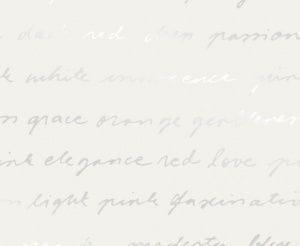 dark red deep passion
white innocence
grace orange gentleness
pink elegance red love
light pink fascinati
modesty blue